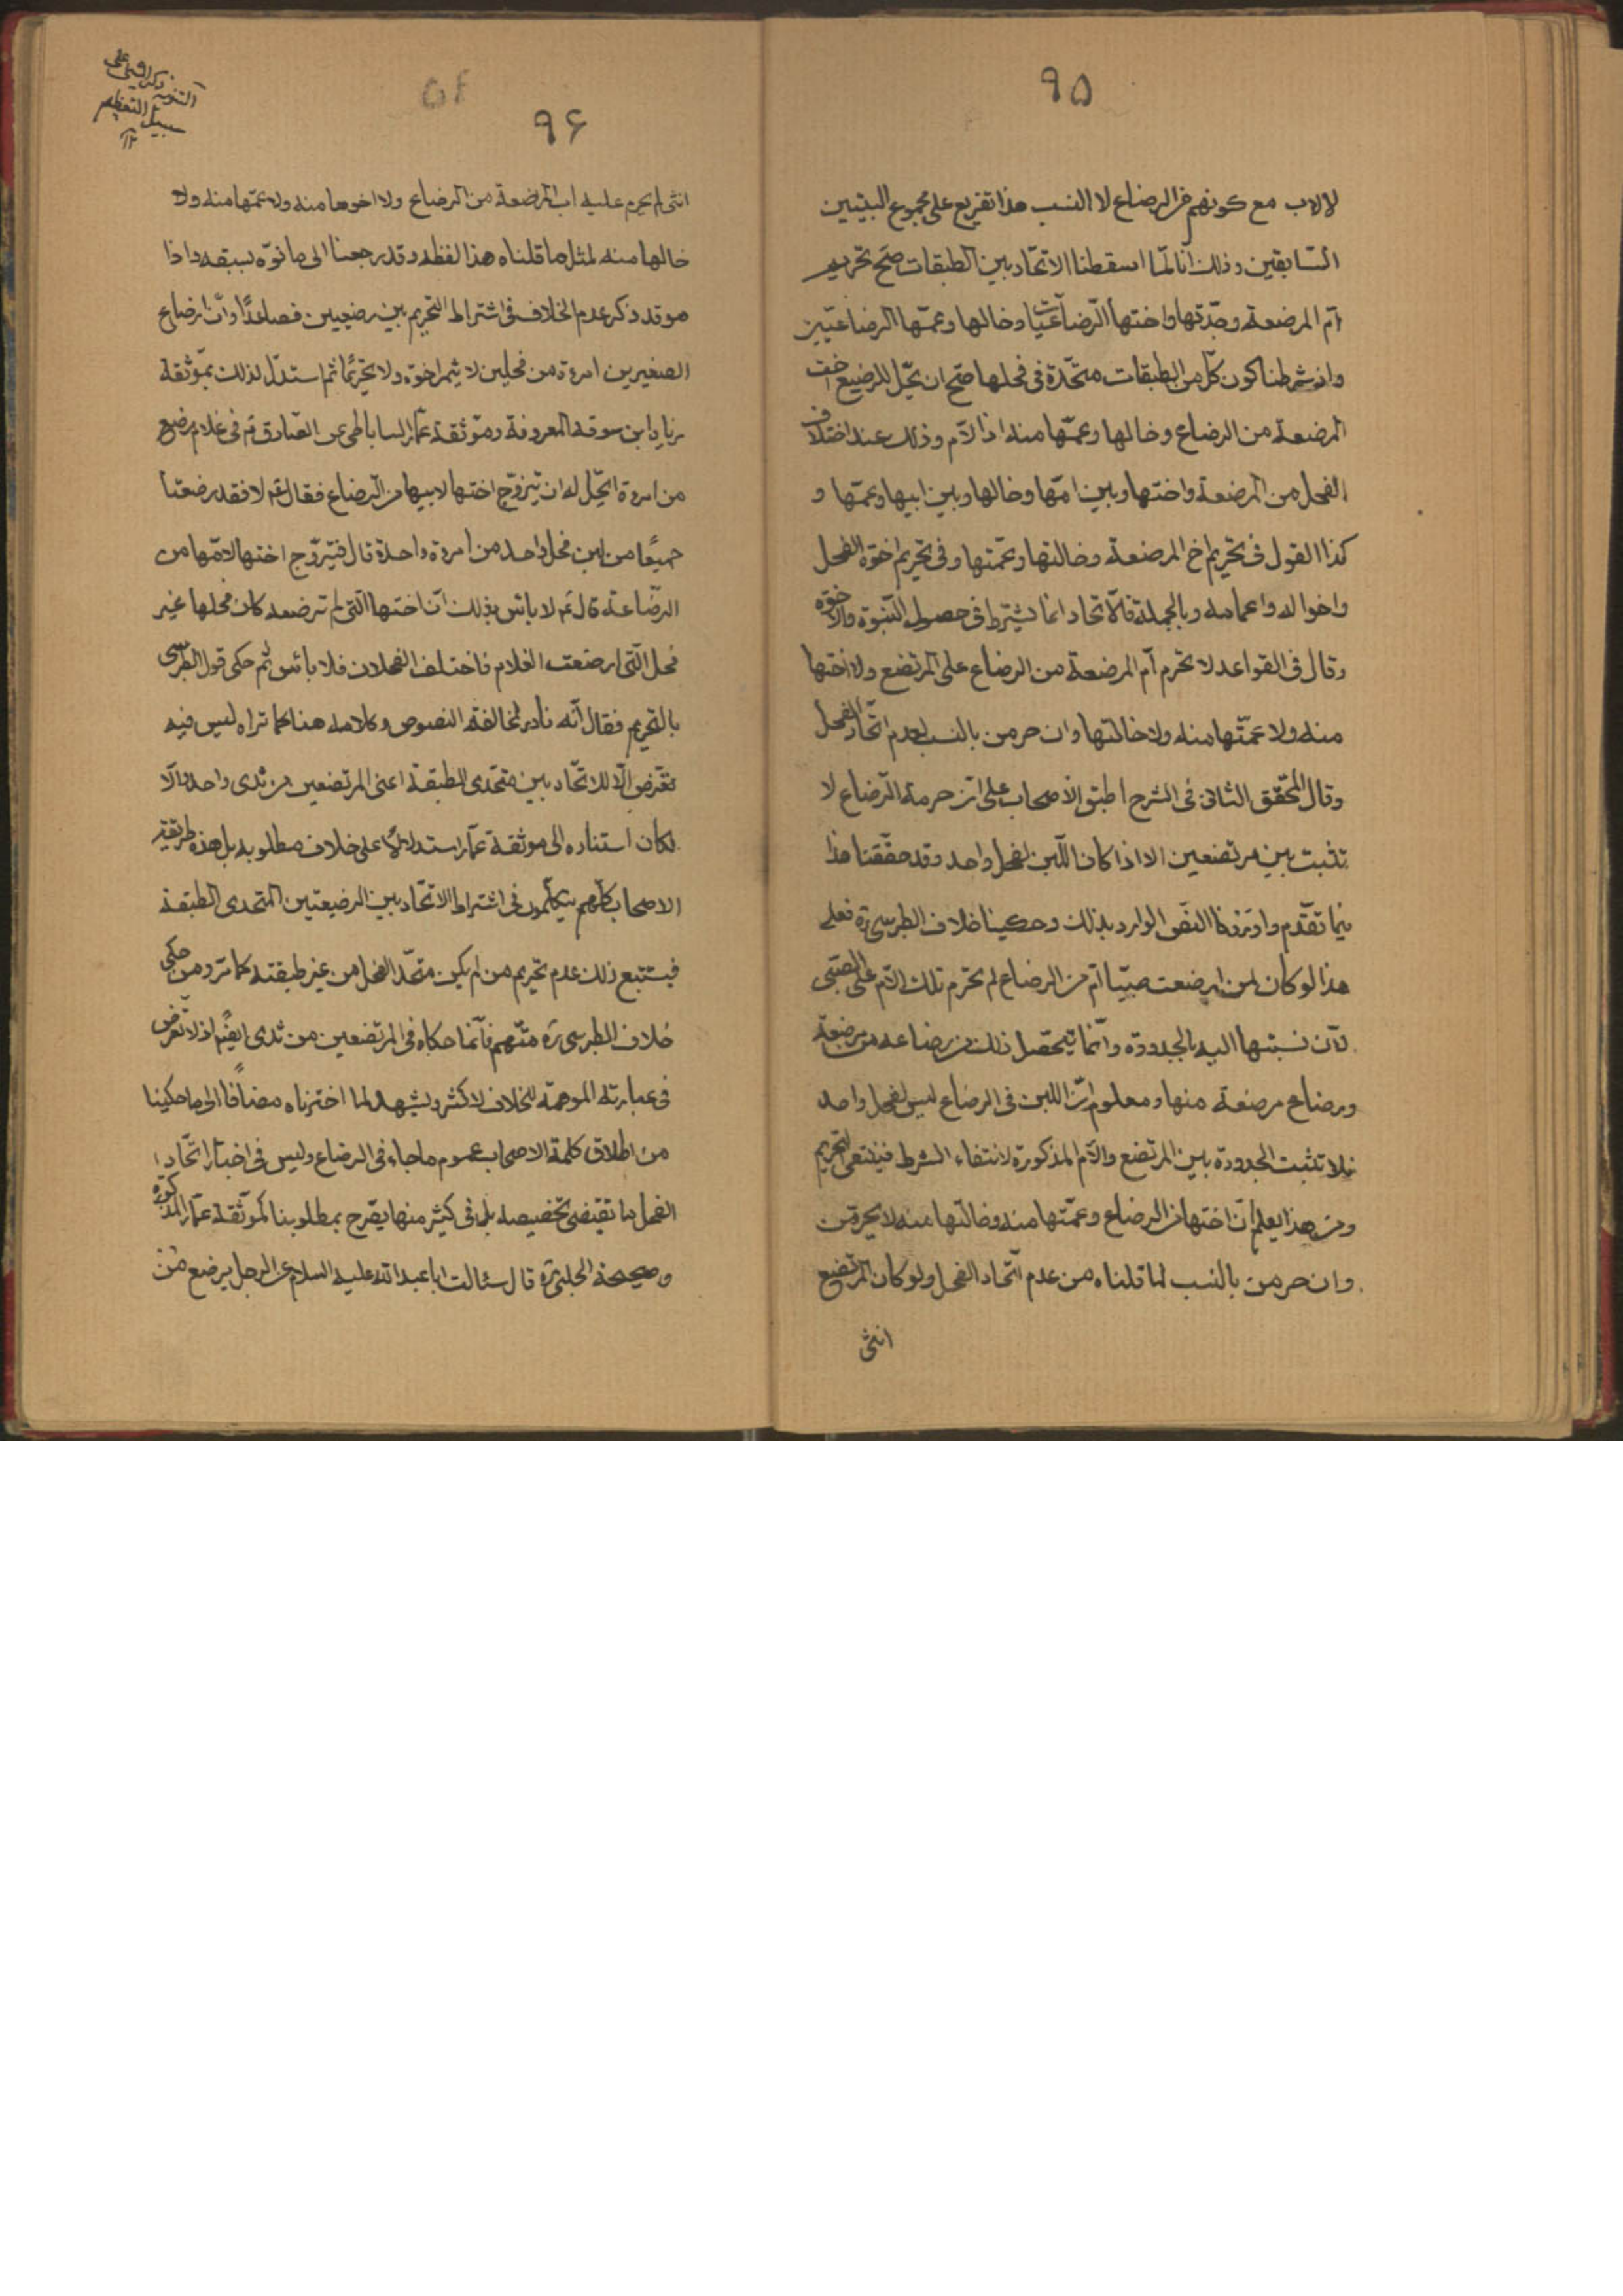 ۹۵
للاب مع كونهم من الرضاع لا النسب هذا تفريع على مجموع البيتين
السّابقين وذلك انا لمّا اسقطنا الاتحاد بين الطبقات صحّ تحريم
امّ المرضعة وجدّتها واختها الرّضاعيّات وخالها وعمّها الرضاعيّين
وان شرطنا كون كلّ من الطبقات متّحدة في فحلها صحّ ان يحلّ للرضيع اخت
المرضعة من الرضاع وخالها وعمّها منه اذ الامّ وذلك عند اختلاف
الفحل من المرضعة واختها وبين امّها وخالها وبين ابيها وعمّها و
كذا القول في تحريم اخ المرضعة وخالتها وعمّتها وفي تحريم اخوة الفحل
واخواله واعمامه وبالجملة فالاتحاد انما يشترط في حصول البنوّة والاخوّه
وقال في القواعد لا تحرم امّ المرضعة من الرضاع على المرتضع ولا اختها
منه ولا عمّتها منه ولا خالتها وان حرمن بالنسب لعدم اتّحاد الفحل
وقال المحقّق الثاني في الشرح اطبق الاصحاب على ان حرمة الرّضاع لا
تثبت بين مرتضعين الا اذا كان اللّبن لفحل واحد وقد حقّقنا هذا
فيما تقدّم واوردنا النصّ الوارد بذلك وحكينا خلاف الطبرسي ره فعلى
هذا لو كان لمن ارضعت صبيّا امّ من الرضاع لم تحرم تلك الامّ على الصبّي
لانّ نسبتها اليه بالجدودة وانّما يتحصّل ذلك من رضاعه من مرضعة
ورضاع مرضعة منها ومعلوم انّ اللبن في الرضاع ليس لفحل واحد
فلا تثبت الجدودة بين المرتضع والامّ المذكورة لانتفاء الشرط فينتفى التحريم
ومن هذا يعلم انّ اختها من الرضاع وعمّتها منه وخالتها منه لا يحرمن
وان حرمن بالنسب لما قلناه من عدم اتّحاد الفحل ولو كان المرتضع
انثى
۹۶
على
التنوية
سبيل التعظيم
انثى لم يحرم عليه اب المرضعة من الرضاع ولا اخوها منه ولا عمّها منه ولا
خالها منه لمثل ما قلناه هذا لفظه وقد رجعنا الى ما نوّه بسبقه فاذا
هو قد ذكر عدم الخلاف في اشتراط التحريم بين رضيعين فصاعدًا وانّ ارضاع
الصغيرين امرءة من فحلين لا يثمر اخوّة ولا تحريمًا ثم استدلّ لذلك بموثقة
زياد ابن سوقة المعروفة وموثقة عمّار الساباطي عن الصادق ع في غلام رضع
من امرءة ايحلّ له ان يتزوّج اختها لابيها من الرضاع فقال ع لا فقد رضعتا
جميعًا من لبن فحل واحد من امرءة واحدة قال فيتزوّج اختها لامّها من
الرّضاعة قال ع لا باس بذلك انّ اختها التي لم ترضعه كان فحلها غير
فحل التي ارضعت الغلام فاختلف الفحلان فلا بائس ثم حكى قول الطبرسى
بالتحريم فقال انّه نادر لمخالفته النصوص وكلامه هنا كما تراه ليس فيه
تعرّض الا للاتحّاد بين متحّدى الطبقة اعنى المرتضعين من ثدى واحد والّا
لكان استناده الى موثقة عمّار استدلالا على خلاف مطلوبه بل هذه طريقة
الاصحاب كلّهم يتكلّمون في اشتراط الاتّحاد بين الرضيعتين المتحدى الطبقة
فيستتبع ذلك عدم تحريم من لم يكن متّحد الفحل من غير طبقته كما ترو من حكى
خلاف الطبرسي ره منّهم فانّما حكاه في المرتضعين من ثدى ايضًا اذ لا تعرّض
في عبارته الموهمة للخلاف لاكثر ويشهد لما اخترناه مضافًا الى ما حكينا
من اطلاق كلمة الاصحاب عموم ما جاء في الرضاع وليس في اخبار اتّحاد
الفحل ما يقتضى تخصيصه بل في كثير منها يصّرح بمطلوبنا كموثقة عمّار المذكورة
وصحيحة الحلبي ره قال سئالت ابا عبد الله عليه السلام عن الرجل يرضع من